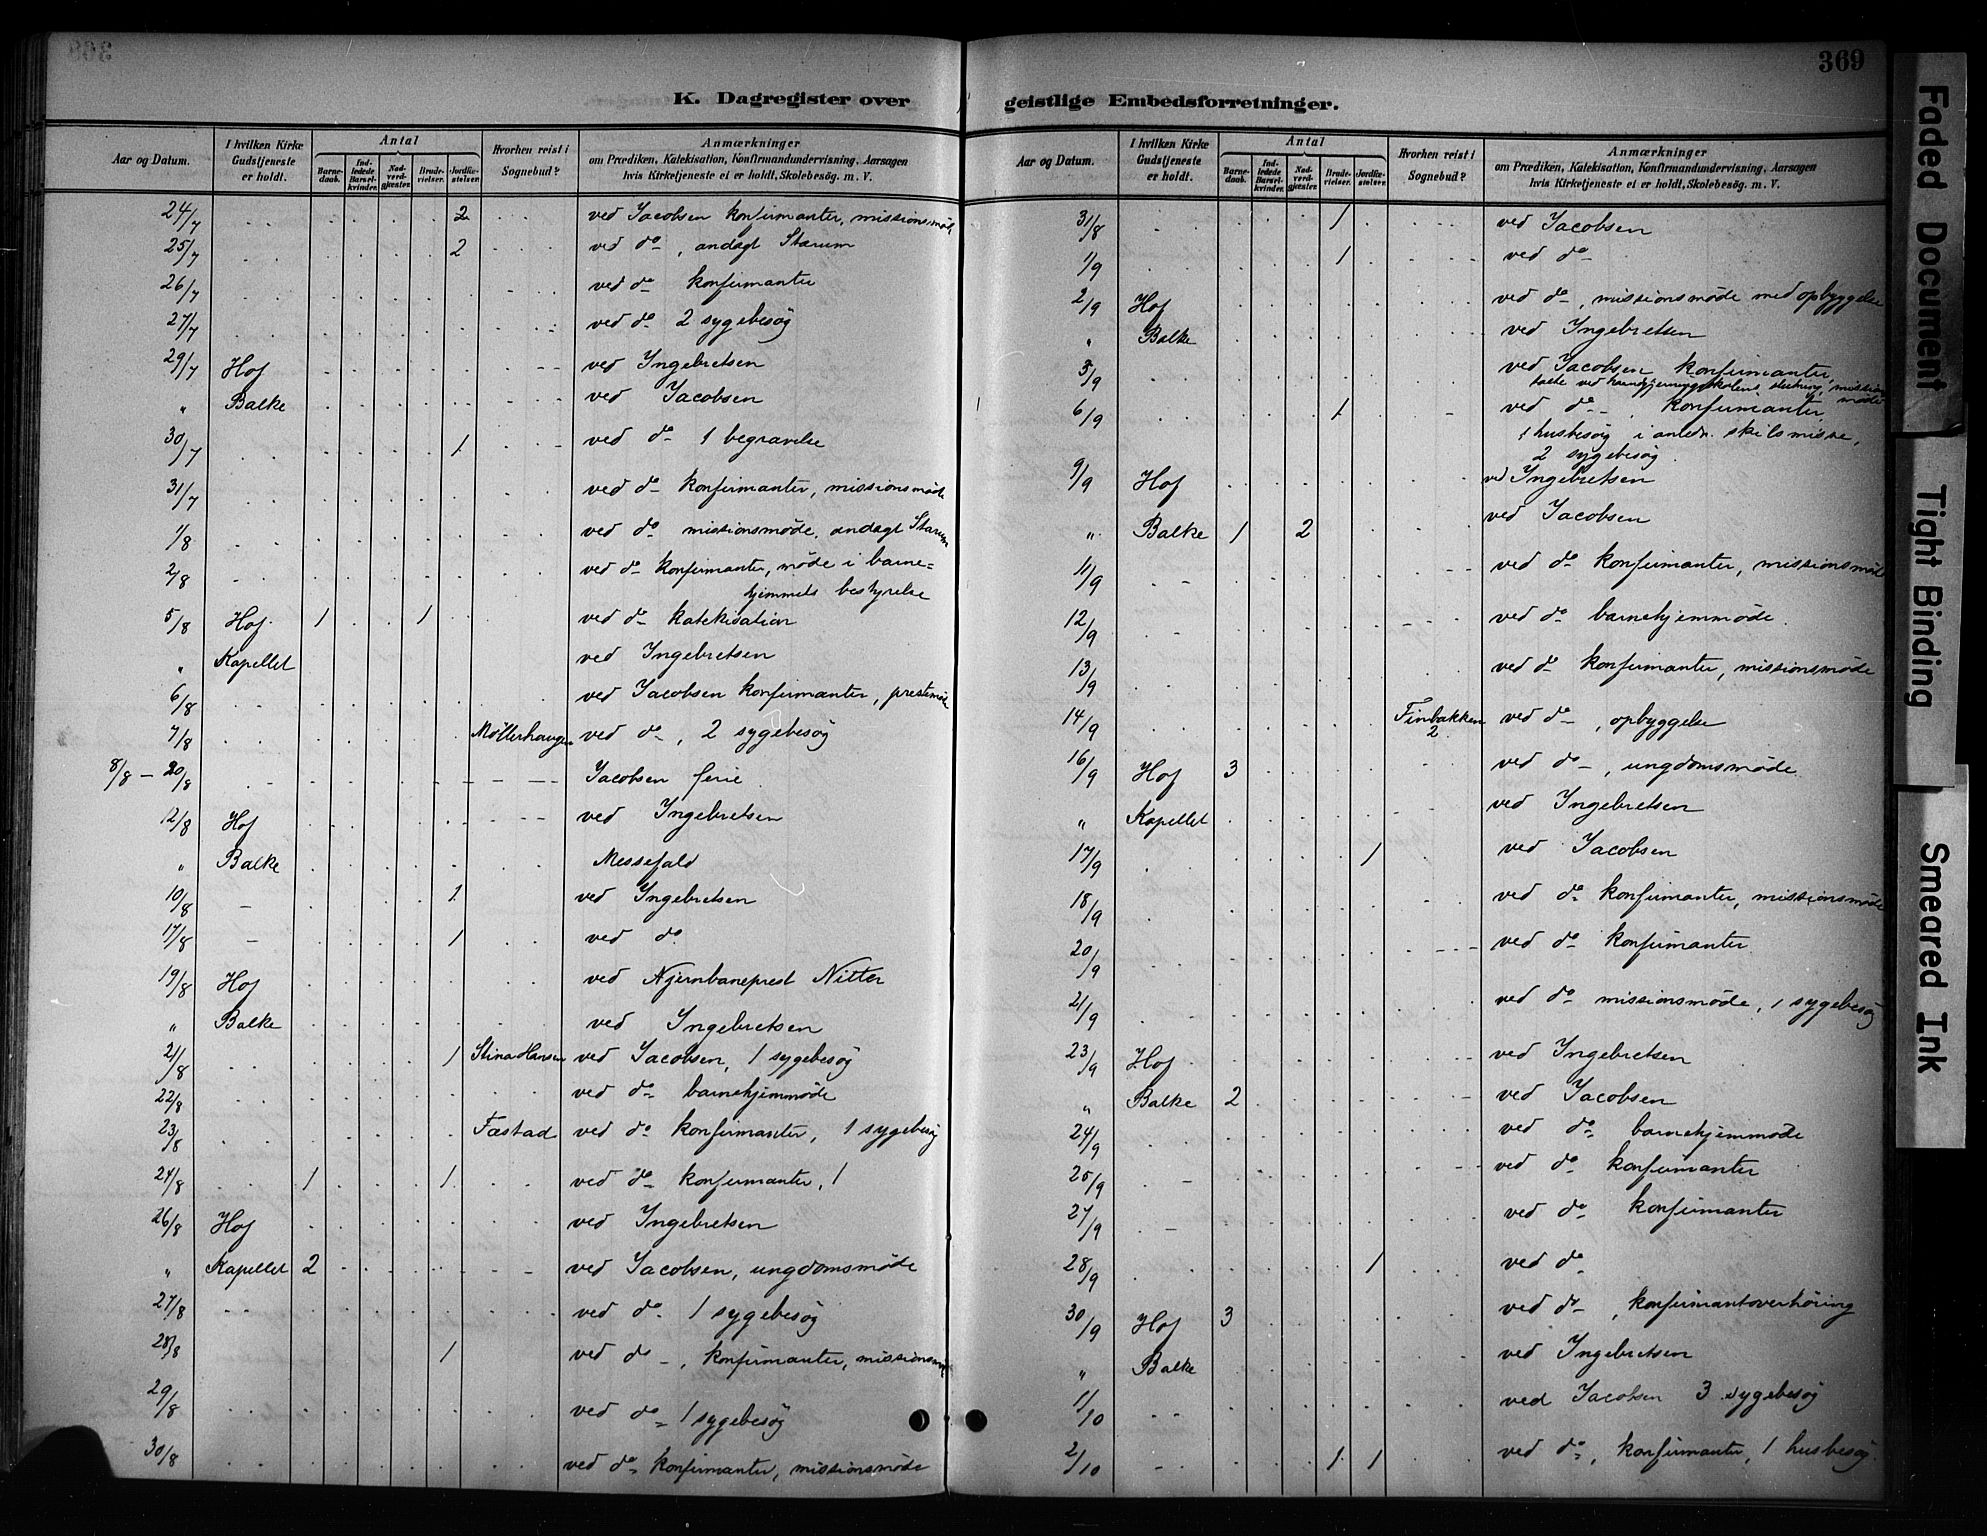 369
K. Dagregister over geistlige Embedsforretninger.
Aar og Datum. I hvilken Kirke Gudstjeneste er holdt. Antal Barnedaab. Indledede Barselkvinder. Nadverdgjæster. Brudevielser. Jordfæstelser. Hvorhen reist i Sognebud? Anmærkninger om Prædiken, Katekisation, Konfirmandundervisning, Aarsagen hvis Kirketjeneste ei er holdt, Skolebesøg. m. V.
24/7 2 ved Jacobsen konfirmanter, missionsmøde
25/7 2 ved do, andagt Starum
26/7 ved do konfirmanter
27/7 ved do 2 sygebesøg
29/7 Hof ved Ingebretsen
" Balke ved Jacobsen
30/7 1 ved do 1 begravelse
31/7 ved do konfirmanter, missionsmøde
1/8 ved do missionsmøde, andagt Starum
2/8 ved do konfirmanter, møde i barne=
hjemmets bestyrelse
5/8 Hof 1 1 ved do katekisation
" Kapellet ved Ingebretsen
6/8 ved Jacobsen konfirmanter, prestemøde
7/8 Møllerhaugen ved do, 2 sygebesøg
8/8 - 20/8 Jacobsen ferie
12/8 Hof ved Ingebretsen
" Balke Messefald
10/8 1 ved Ingebretsen
17/8 1 ved do
19/8 Hof ved Nitter
" Balke ved Ingebretsen
21/8 1 Stina Hansen ved Jacobsen, 1 sygebesøg
22/8 ved do barnehjemmøde
23/8 Fæstad ved do konfirmanter, 1 sygebesøg
24/8 1 1 ved do konfirmanter, 1
26/8 Hof ved Ingebretsen
" Kapellet 2 ved Jacobsen, ungdomsmøde
27/8 ved do 1 sygebesøg
28/8 1 ved do, konfirmanter, missionsmøde
29/8 ved do 1 sygebesøg
30/8 ved do konfirmanter, missionsmøde
Aar og Datum. I hvilken Kirke Gudstjeneste er holdt. Antal Barnedaab. Indledede Barselkvinder. Nadverdgjæster. Brudevielser. Jordfæstelser. Hvorhen reist i Sognebud? Anmærkninger om Prædiken, Katekisation, Konfirmandundervisning, Aarsagen hvis Kirketjeneste ei er holdt, Skolebesøg. m. V.
31/8 1 ved Jacobsen
1/9 1 ved do
2/9 Hof ved do, missionsmøde med opbyggelse
" Balke ved Ingebretsen
5/9 ved Jacobsen konfirmanter,
talte ved slutning, missionsmøde
6/9 1 ved do, konfirmanter
1 husbesøg i anledn. skilsmisse,
2 sygebesøg
9/9 Hof ved Ingebretsen
" Balke 1 2 ved Jacobsen
11/9 ved do konfirmanter, missionsmøde
12/9 ved do barnehjemmøde
13/9 ved do konfirmanter, missionsmøde
14/9 Finbakken 2 ved do, opbyggelse
16/9 Hof 3 ved do, ungdomsmøde
" Kapellet ved Ingebretsen
17/9 1 ved Jacobsen
18/9 ved do konfirmanter, missionsmøde
20/9 ved do konfirmanter
21/9 ved do missionsmøde, 1 sygebesøg
23/9 Hof ved Ingebretsen
" Balke 2 ved Jacobsen
24/9 ved do barnehjemmøde
25/9 ved do konfirmanter
27/9 ved do konfirmanter
28/9 1 ved do
30/9 Hof 3 ved do, konfirmantoverhøring
" Balke ved Ingebretsen
1/10 ved Jacobsen 3 sygebesøg
2/10 1 1 ved do, konfirmanter, 1 husbesøg
Faded Document
Tight Binding
Smeared Ink